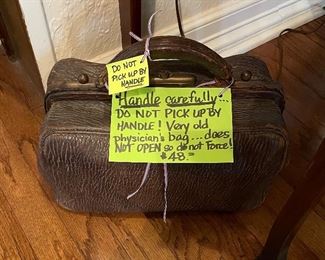 DO NOT
PICK UP BY
HANDLE
Handle carefully...
DO NOT PICK UP BY
HANDLE! Very old
physician's bag...does
NOT OPEN so do not Force!
$48.00